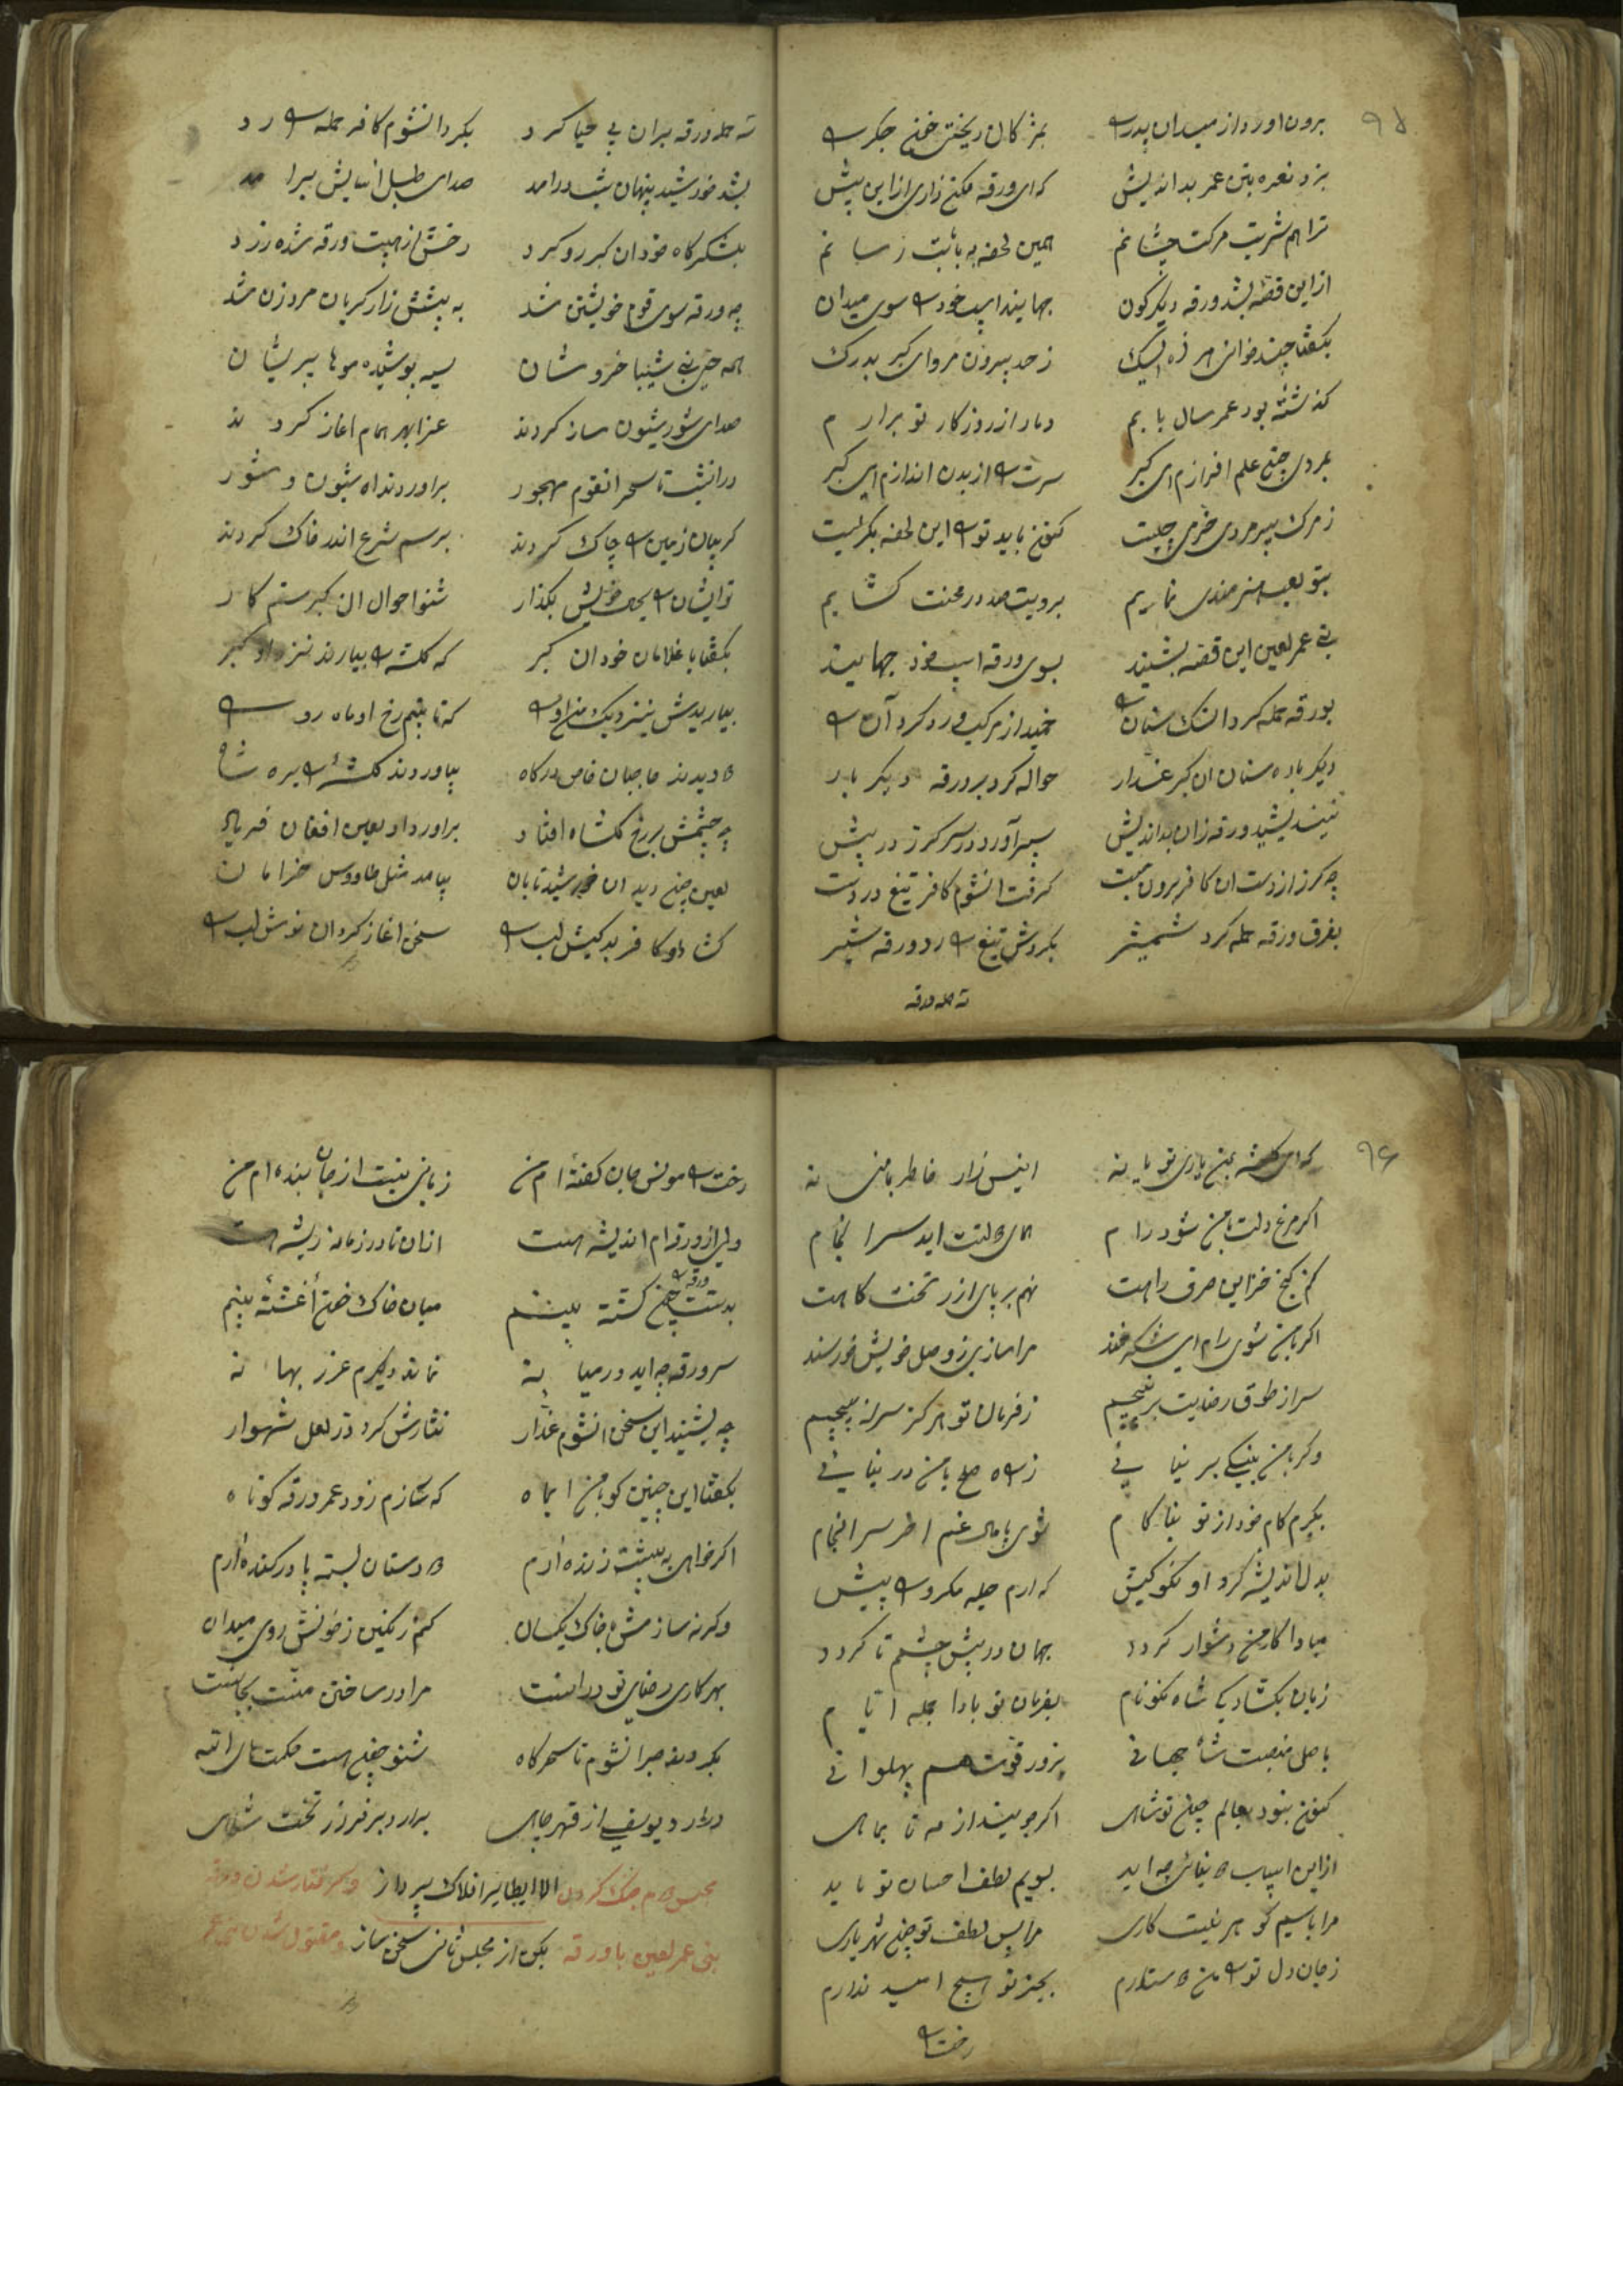 ۹۵
برون اورد از میدان پدر را بمژکان ریختن خون جکر را
بزد نعره بنی عمر بداندیش که ای ورقه مکن زاری ازاین پیش
ترا هم شربت مرکت چشانم همین لحظه به بابت رسانم
ازاین قصه بشد ورقه دیکرکون جهانید اسب خود را سوی میدان
بکفتا چند خوانی ز حد بیرون مرو ای کبر بدرک
کذشته بود عمر سال بابم دمار از روزکار تو برارم
بمردی چون علم افرازم ای کبر سرت را از بدن اندازم ای کبر
ز مرک پیرمردی خرمی چیست کنون باید تو را این لحظه بکریست
بتو لعب هنرمندی نمایم برویت صد در محنت کشایم
بنی عمر لعین این قصه بشنید بسوی ورقه اسب خود جهانید
بورقه حمله کرد انک سنان را خمید از مرکب و رد کرد آن را
دیکر باره سنان ان کبر غدار حواله کرد بر ورقه دیکر بار
نیندیشید ورقه زان بداندیش سپر آورد در سر کرز در پیش
چه کرز از دست ان کافر برون جست کرفت انشوم کافر تیغ در دست
بفرق ورقه حمله کرد شمشیر بکردش تیغ را رد ورقه شیر
ته حمله ورقه
ته حمله ورقه بران بی حیا کرد بکرد انشوم کافر حمله را رد
بشد خورشید پنهان شب درامد صدای طبل اسایش برامد
بلشکرکاه خود ان کبر رو کرد رخش از هیبت ورقه شده زرد
چه ورقه سوی قوم خویشتن شد به پیشش زار کریان مرد و زن شد
همه حی بنی شیبا خروشان سیه پوشیده موها پریشان
صدای شور شیون ساز کردند عزا بهر همام اغاز کردند
در انشب تا سحر انقوم مهجور براوردند اه شیون و شور
کریبان زمین را چاک کردند برسم شرع اندر خاک کردند
تو ایشان را بحال خویش بکذار شنو احوال ان کبر ستم کار
بکفتا با غلامان خود ان کبر که کلشه را بیارند نزد او کبر
بیاریدش بنزدیک من او را که تا بینم رخ او ماه رو را
دویدند حاجبان خاص درکاه بیاوردند کلشه را بره شاه
چه چشمش بر رخ کلشاه افتاد براورد او لعین افغان فریاد
لعین چون دید ان خورشید تابان بیامد مثل طاووس خرامان
کشاد او کافر بدکیش لب را سخن اغاز کرد ان نوش لب را
۹۶
که ای کلشه بمن یاری تو یا نه انیس زار خاطر با منی نه
اکر مرغ دلت با من شود رام همای دولتت اید سرانجام
کنم کنج خزاین صرف راهت نهم بر پای از زر تخت کاهت
اکر با من شوی رام ای شکرخند مرا سازی ز وصل خویش خورسند
سر از طوق رضایت برنپیچم ز فرمان تو هرکز سر نپیچم
وکر با من بنیکی بر نیائی ز راه صلح با من در نیائی
بکیرم کام خود از تو بناکام شوی پامال غم اخر سرانجام
بدل اندیشه کرد او نکوکیش که ارم حیله مکر را پیش
مبادا کار من دشوار کردد جهان در پیش چشمم تار کردد
زبان بکشاد کی شاه نکونام بفرمان تو بادا جمله ایام
باصل منصبت شاه جهانی بزور قوتت هم پهلوانی
کنون نبود بعالم چون تو شاهی اکر جویند از مه تا بماهی
ازاین اسباب دنیائی چه اید بسویم لطف احسان تو باید
مرا با سیم کوهر نیست کاری مرا بس لطف تو چون شهریاری
ز جان دل تو را من دوستدارم بجز تو هیچ امید ندارم
رخت را
رخت را مونس جان کفته ام من زبانی نیست از جان بنده ام من
ولی از ورقه ام اندیشه هست ازان تا در زمانه ریشه هست
بدستت چون ورقه را کشته بینم میان خاک خون آغشته بینم
سر ورقه چه اید در میانه نماند دیکرم عذر بهانه
چه بشنید این سخن انشوم غدار نثارش کرد در لعل شهوار
بکفتا این چنین کو با من ای ماه که سازم زود عمر ورقه کوتاه
اکر خواهی به پیشت زنده آرم دو دستان بسته پا در کنده آرم
وکر نه سازمش با خاک یکسان کنم رنکین ز خونش روی میدان
بهر کاری رضای تو در انست مرا در ساختن منت بجانست
بکردند صبر انشوم تا سحرکاه شنو چون هست حکمتهای الله
درارد یوسفی از قعر چاهی برارد بر فراز تخت شاهی
مجلس دوم جنک کردن الا ای طایر افلاک پرواز وکرفتار شدن ورقه
بنی عمر لعین با ورقه بکو از مجلس ثانی سخن ساز و مقتول شدن بنی عمر